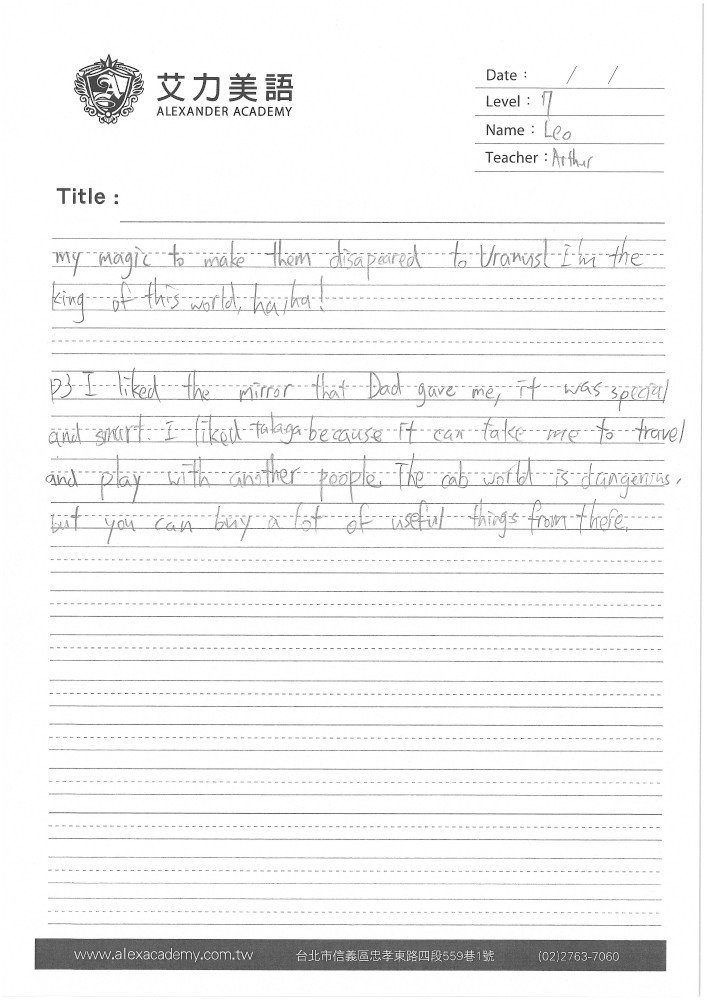 艾力美語
ALEXANDER ACADEMY
Date : / /
Level : 7
Name : Leo
Teacher : Arthur
Title :
my magic to make them disapeared to Uranus! I'm the
king of this world, ha, ha!
P3 I liked the mirror that Dad gave me, it was special
and smart. I liked Talaga because it can take me to travel
and play with another poople. The cab world is dangerius,
but you can buy a lot of useful things from there.
www.alexacademy.com.tw 台北市信義區忠孝東路四段559巷1號 (02)2763-7060